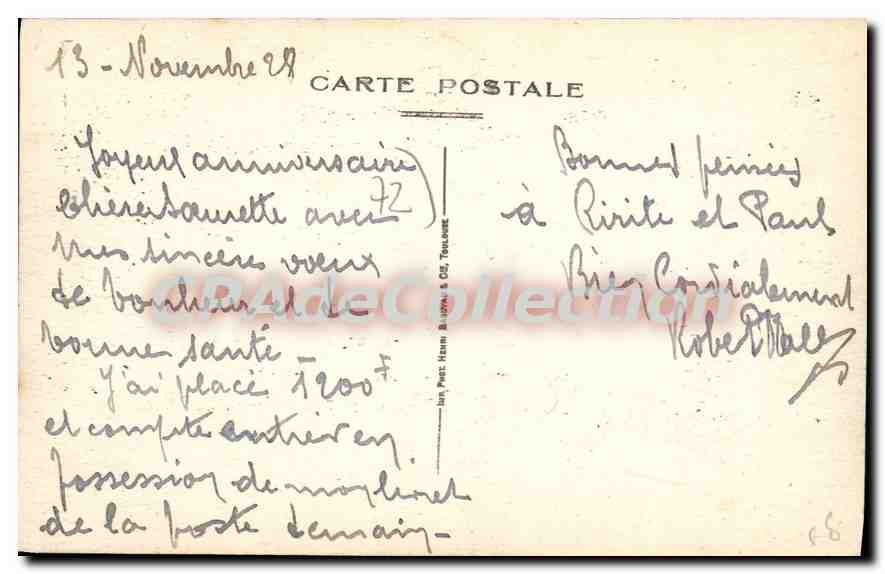 13 - Novembre 28
CARTE POSTALE
Joyeux anniversaire
chère Sœurette avec
72
mes sincères vœux
de bonheur et de
bonne santé -
J'ai placé 1200 F
et compte entrer en
possession de mon livret
de la poste demain -
Bonnes pensées
à Ririte et Paul
Bien Cordialement
Robert
IMP. PHOT. HENRI BASUYAU & CIE, TOULOUSE
CPAdeCollection